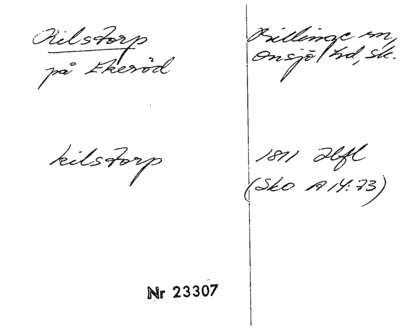 Kilstorp
på Ekeröd
Billinge sn,
Onsjö hd, Sk.
Kilstorp
1811 Hbfl
(Sko A 14:73)
Nr 23307